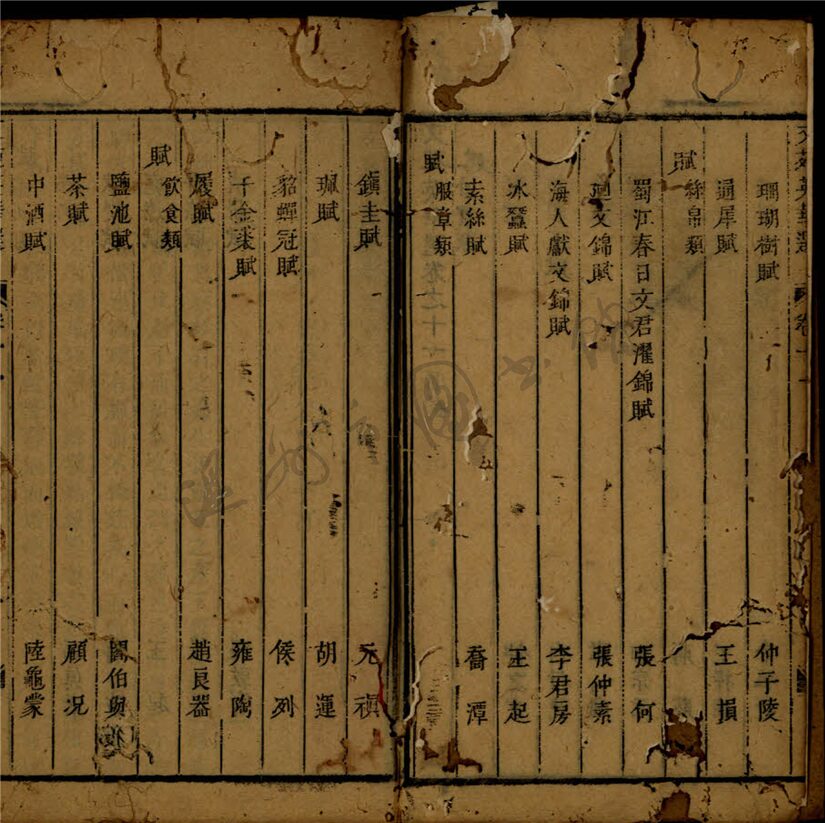 珊瑚樹賦 仲子陵
通犀賦 王損
賦絲帛類
蜀江春日文君濯錦賦 張何
迴文錦賦 張仲素
海人獻文錦賦 李君房
冰蠶賦 王起
素絲賦 喬潭
賦服章類
鎮圭賦 元稹
珮賦 胡運
貂蟬冠賦 侯列
千金裘賦 雍陶
履賦 趙良器
賦飲食類
鹽池賦 閻伯璵
茶賦 顧况
中酒賦 陸龜蒙